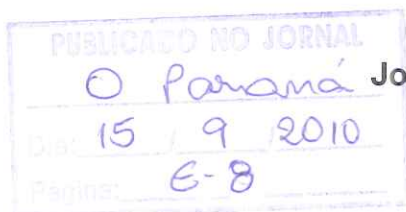 PUBLICADO NO JORNAL
O Paraná Jo
Dia: 15 / 9 / 2010
Página: E-8